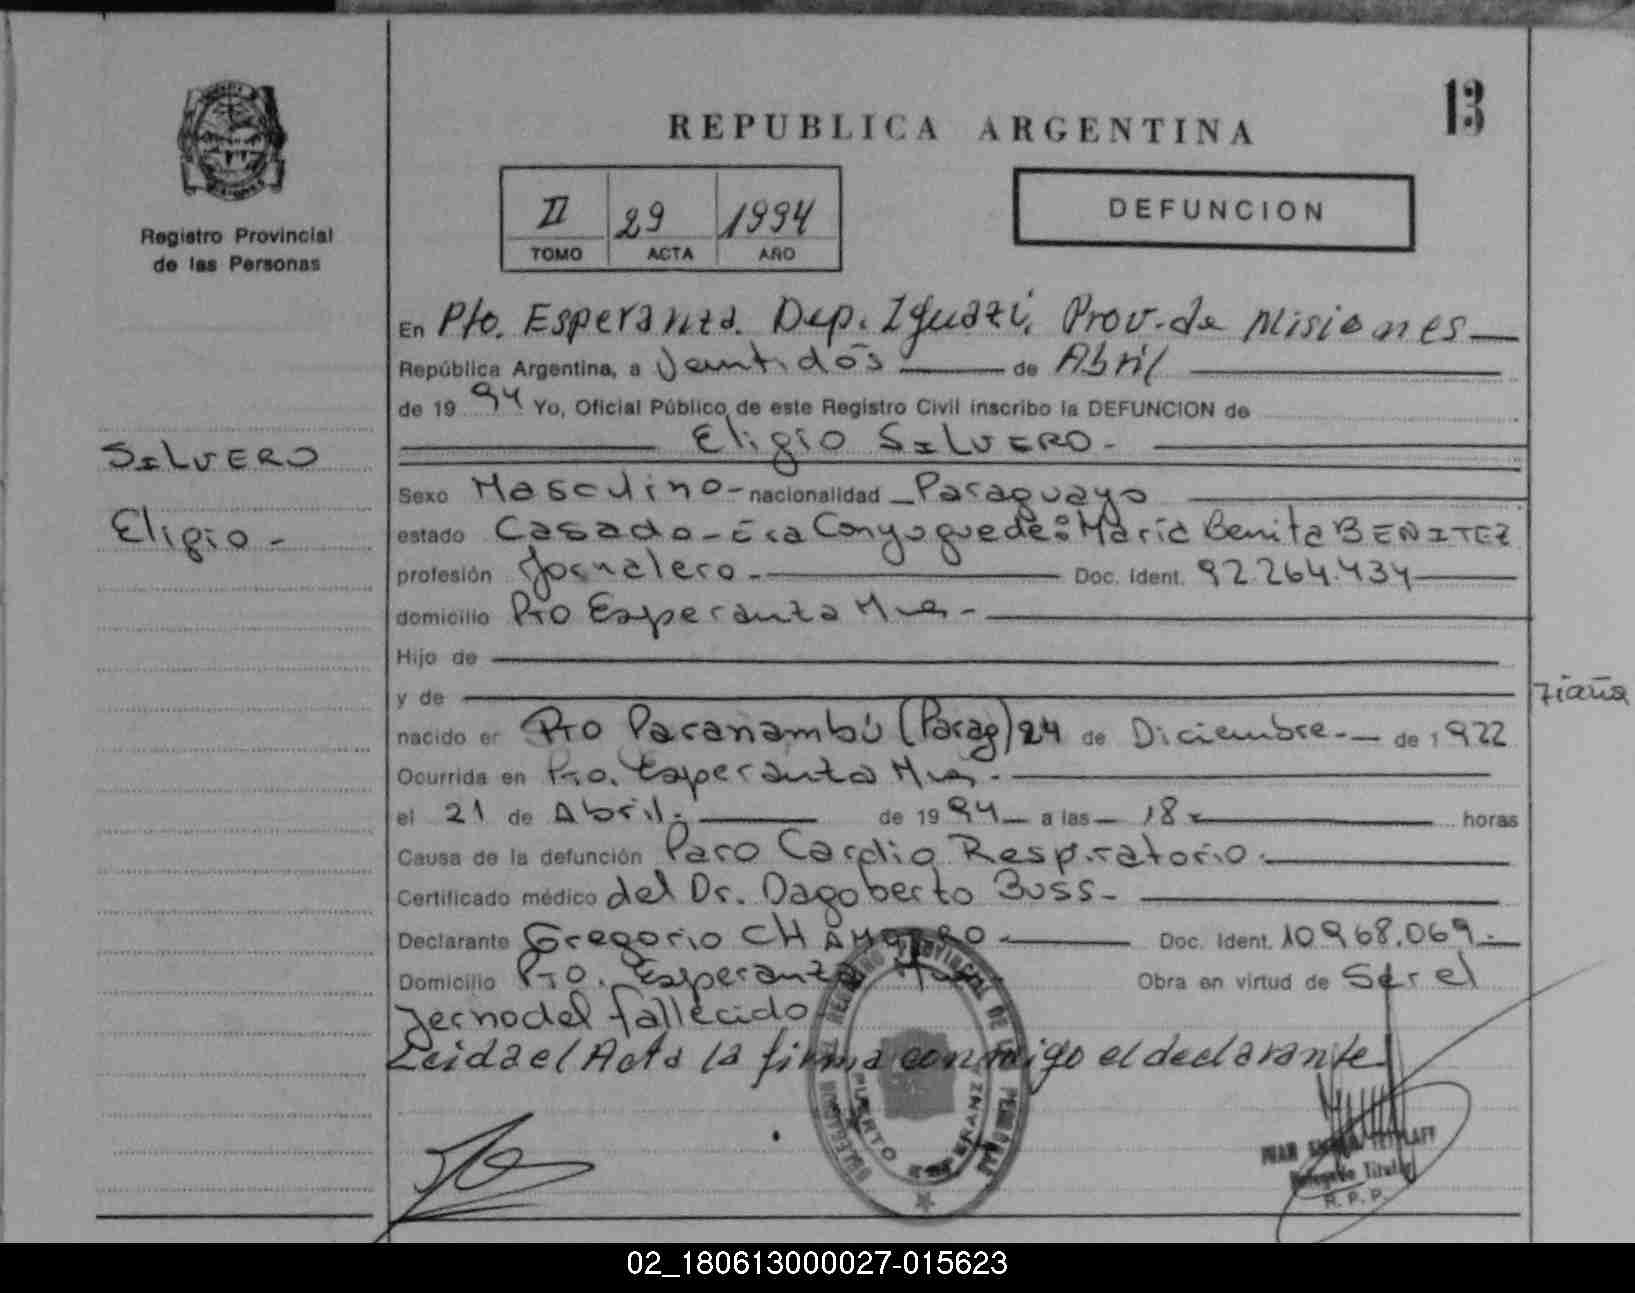 13
REPUBLICA ARGENTINA
Registro Provincial
de las Personas
II 29 1994
TOMO ACTA AÑO
DEFUNCION
En Pto. Esperanza. Dep. Iguazú, Prov. de Misiones
República Argentina, a Veintidós de Abril
de 1994 Yo, Oficial Público de este Registro Civil inscribo la DEFUNCION de
Eligio SILVERO.
SILVERO
Eligio -
Sexo Masculino - nacionalidad Paraguayo
estado Casado - Era Conyugue de: María Benita BENITEZ
profesión Jornalero. - Doc. Ident. 92.264.434
domicilio Pto Esperanza Mnes. -
Hijo de
y de
nacido en Pto Paranambú (Parag) 24 de Diciembre. - de 1922
Ocurrida en Pto. Esperanza Mnes. -
el 21 de Abril. - de 1994 a las 18 horas
Causa de la defunción Paro Cardio Respiratorio.
Certificado médico del Dr. Dagoberto Buss -
Declarante Gregorio CHAMORRO - Doc. Ident. 10.968.069.
Domicilio Pto. Esperanza Obra en virtud de Ser el
Yerno del fallecido
Leida el Acta la firma conmigo el declarante.
REGISTRO PROVINCIAL DE LAS PERSONAS
PUERTO ESPERANZA
JUAN
Delegado Titular
R.P.P.
02_180613000027-015623